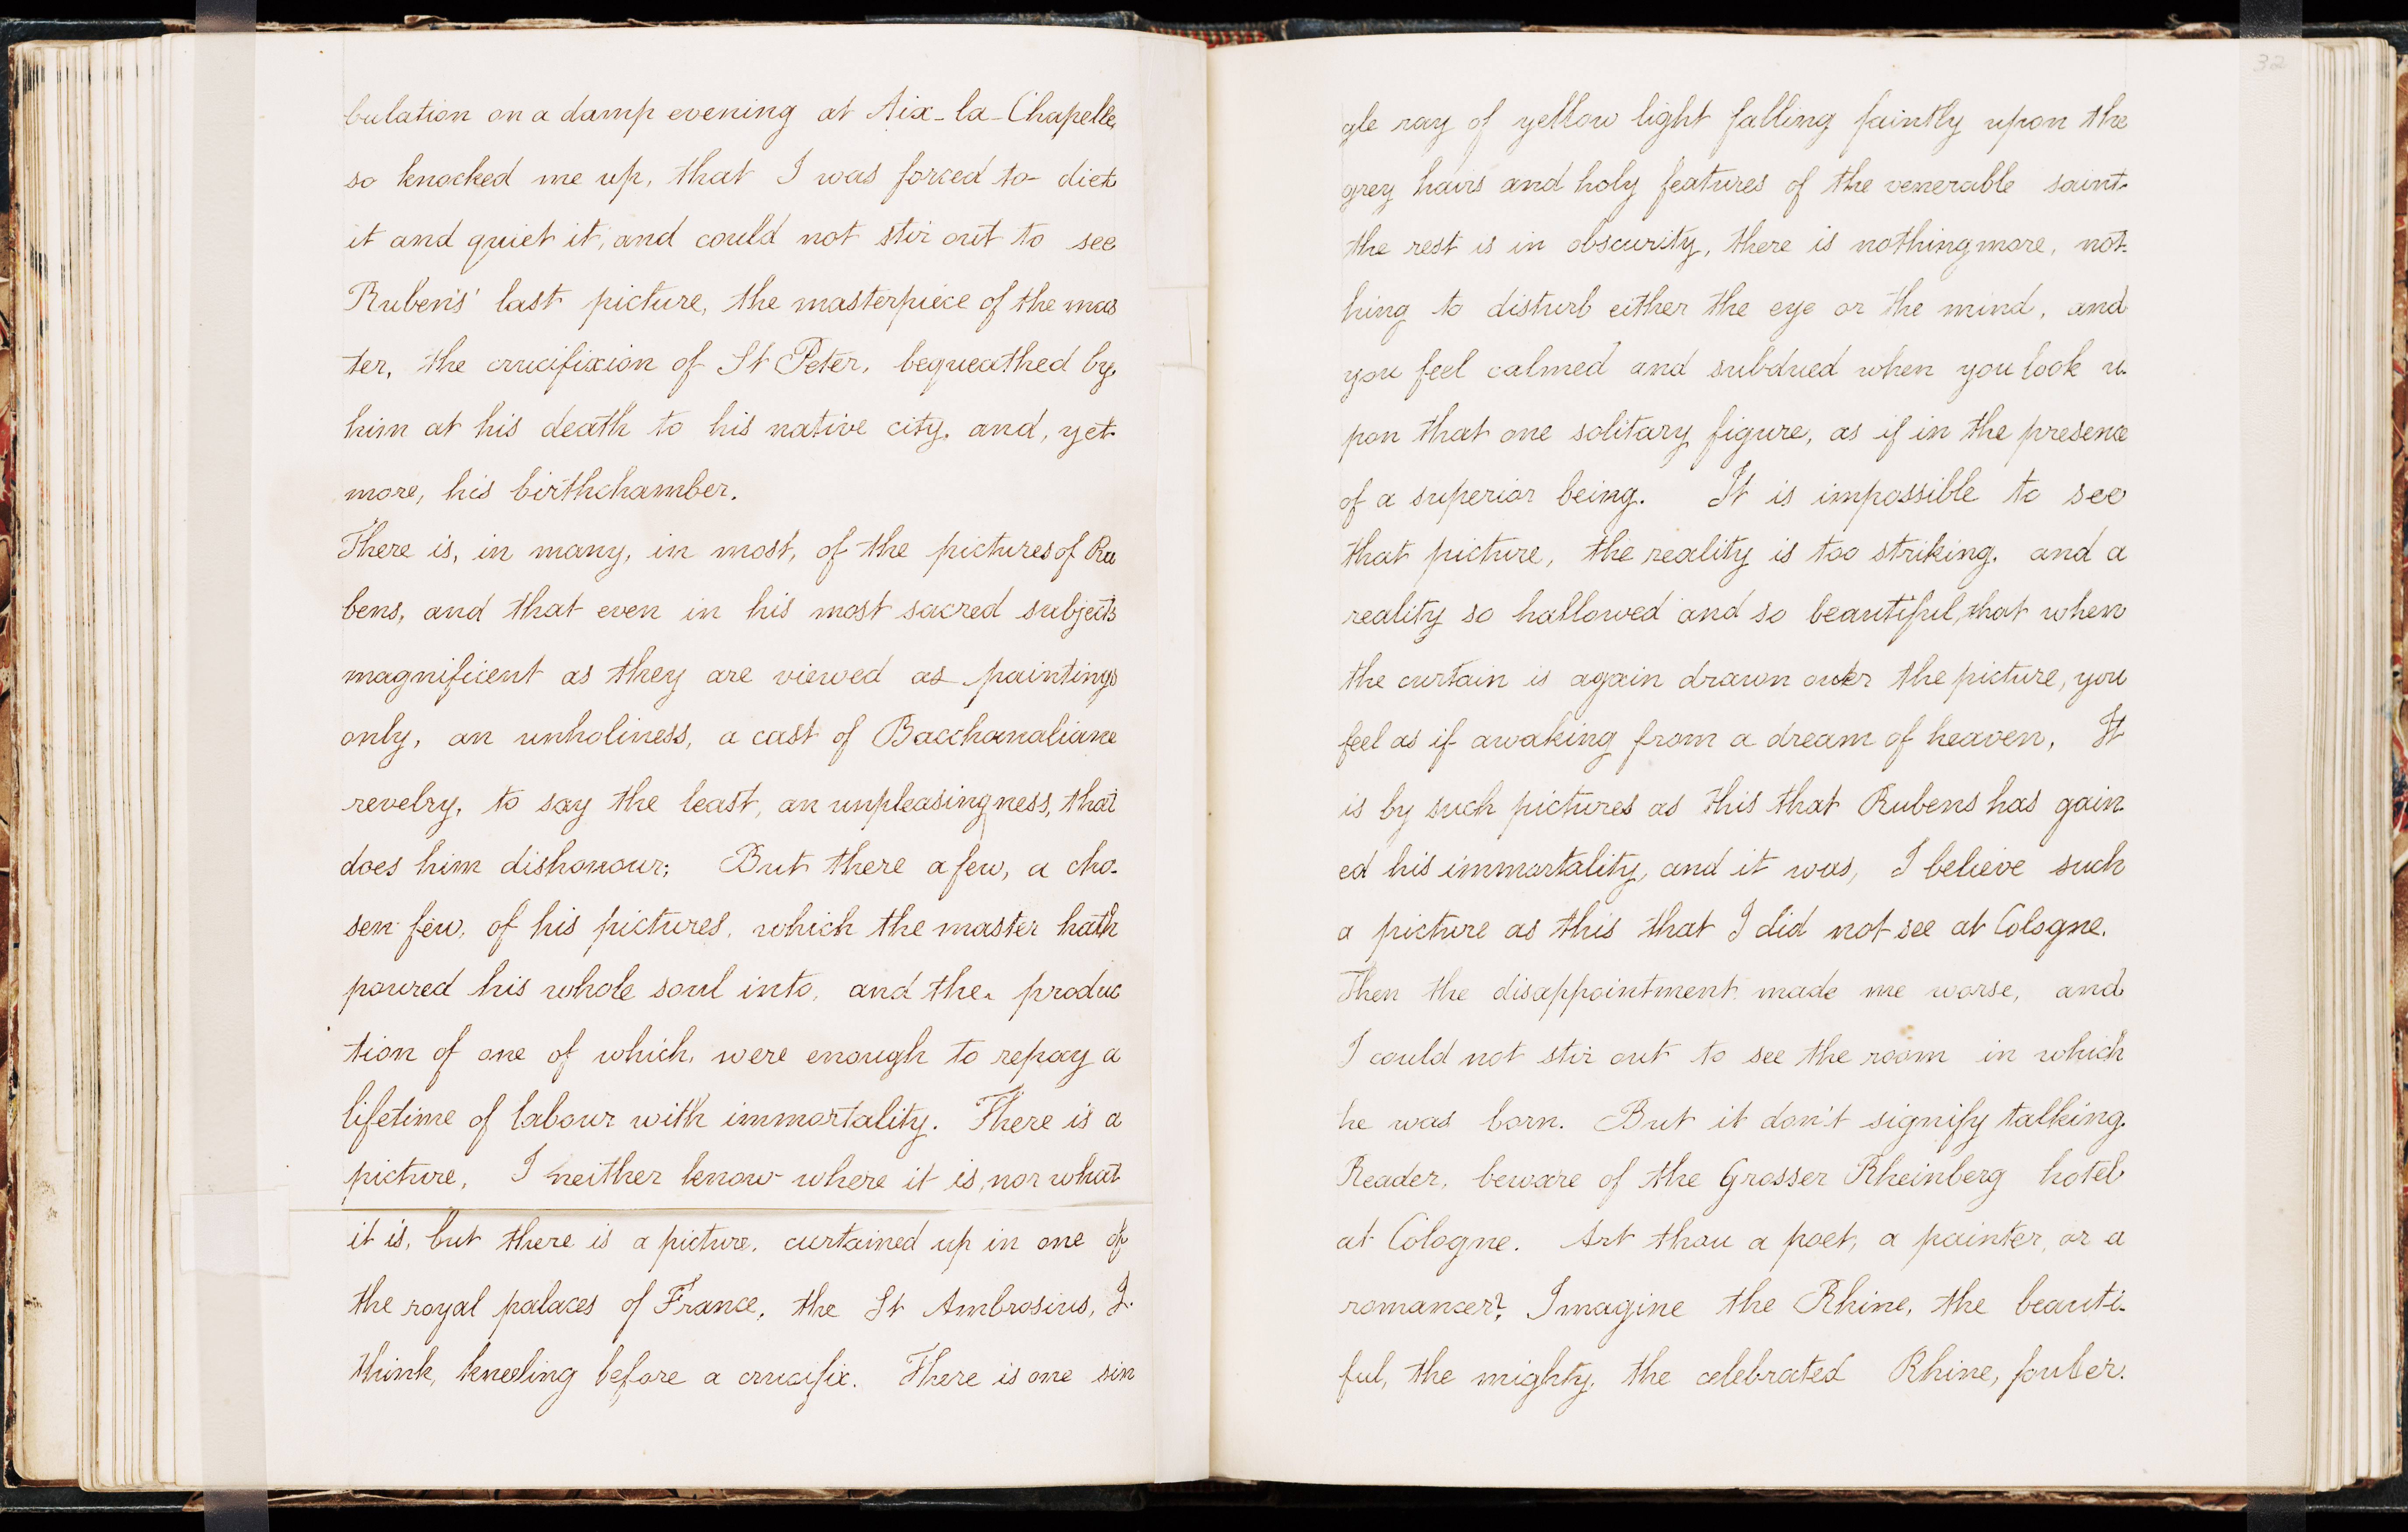 bulation on a damp evening at Aix-la-Chapelle,
so knocked me up, that I was forced to diet
it and quiet it, and could not stir out to see
Ruben's' last picture, the masterpiece of the mas
ter, the crucifixion of St Peter, bequeathed by
him at his death to his native city, and, yet
more, his birthchamber.
There is, in many, in most, of the pictures of Ru
bens, and that even in his most sacred subjects
magnificent as they are viewed as paintings
only, an unholiness, a cast of Bacchanaliane
revelry, to say the least, an unpleasingness, that
does him dishonour; But there a few, a cho-
sen few, of his pictures, which the master hath
poured his whole soul into, and the produc
tion of one of which, were enough to repay a
lifetime of labour with immortality. There is a
picture, I neither know where it is, nor what
it is, but there is a picture, curtained up in one of
the royal palaces of France, the St Ambrosius, I
think, kneeling before a crucifix. There is one sin
32
gle ray of yellow light falling faintly upon the
grey hairs and holy features of the venerable saint.
the rest is in obscurity, there is nothing more, not-
hing to disturb either the eye or the mind, and
you feel calmed and subdued when you look u-
pon that one solitary figure, as if in the presence
of a superior being. It is impossible to see
that picture, the reality is too striking, and a
reality so hallowed and so beautiful, that when
the curtain is again drawn over the picture, you
feel as if awaking from a dream of heaven, It
is by such pictures as this that Rubens has gain
ed his immortality, and it was, I believe such
a picture as this that I did not see at Cologne.
Then the disappointment made me worse, and
I could not stir out to see the room in which
he was born. But it don't signify talking.
Reader, beware of the Grosser Rheinberg hotel
at Cologne. Art thou a poet, a painter, or a
romancer? Imagine the Rhine, the beauti-
ful, the mighty, the celebrated Rhine,